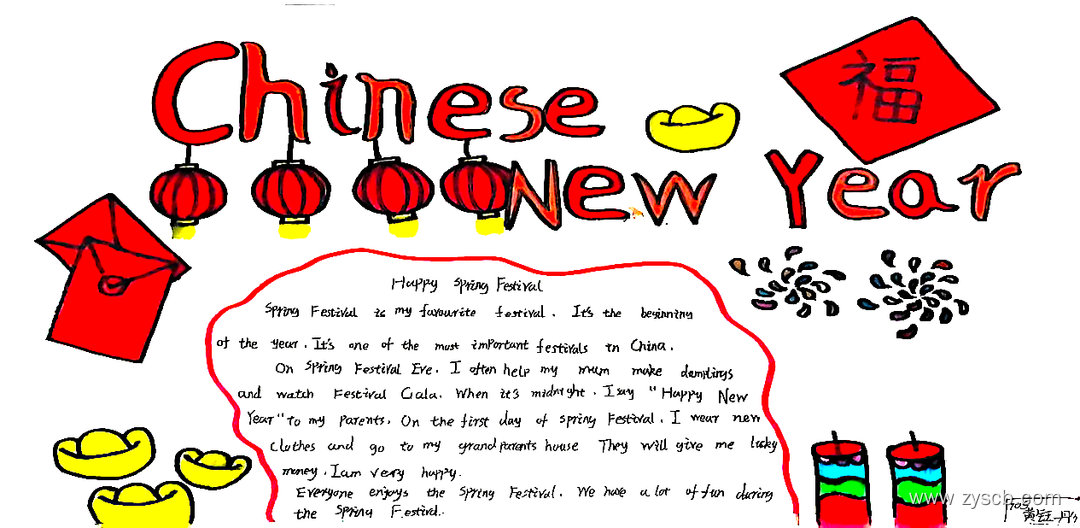 Chinese
福
New Year
Happy Spring Festival
Spring Festival is my favourite festival. It's the beginning
of the year. It's one of the most important festivals in China.
On Spring Festival Eve. I often help my mum make dumplings
and watch Festival Gala. When it's midnight. I say "Happy New
Year" to my parents. On the first day of spring Festival. I wear new
clothes and go to my grandparents house They will give me lucky
money. I am very happy.
Everyone enjoys the Spring Festival. We have a lot of fun during
the Spring Festival.
www.zyscb.com